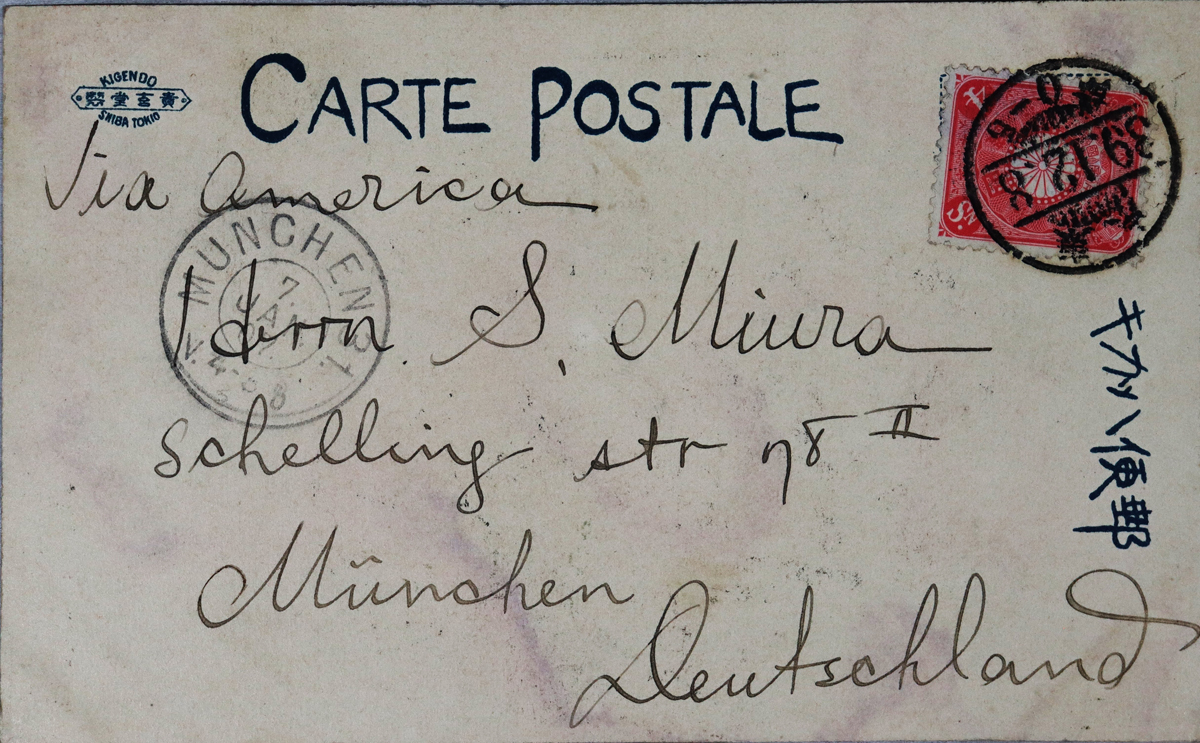 KIGENDO
SHIBA TOKIO
CARTE POSTALE
Via America
Herrn S. Miura
Schelling str 78 II
München
Deutschland
MÜNCHEN
7
JAN
4-5
8
39.12.8
4
Sn.
郵便ハガキ